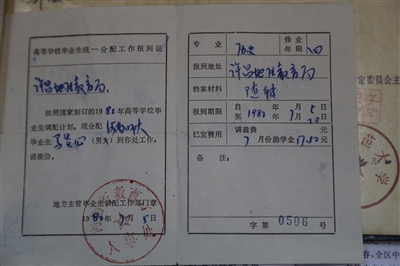 高等学校毕业生统一分配工作报到证
许昌地区教育局:
按照国家制订的1982年高等学校毕
业生调配计划,现分配
毕业生
(男女)到你处工作,
请接洽。
地方主管毕业生调配工作部门章
1982年7月5日
专业
历史
修业
年限
四
报到地址
许昌地区教育局
档案材料
随转
报到期限
自1982年7月5日
至 7月20日
已发费用
调遣费 元
7月份助学金17.50元
备注:
字第0506号